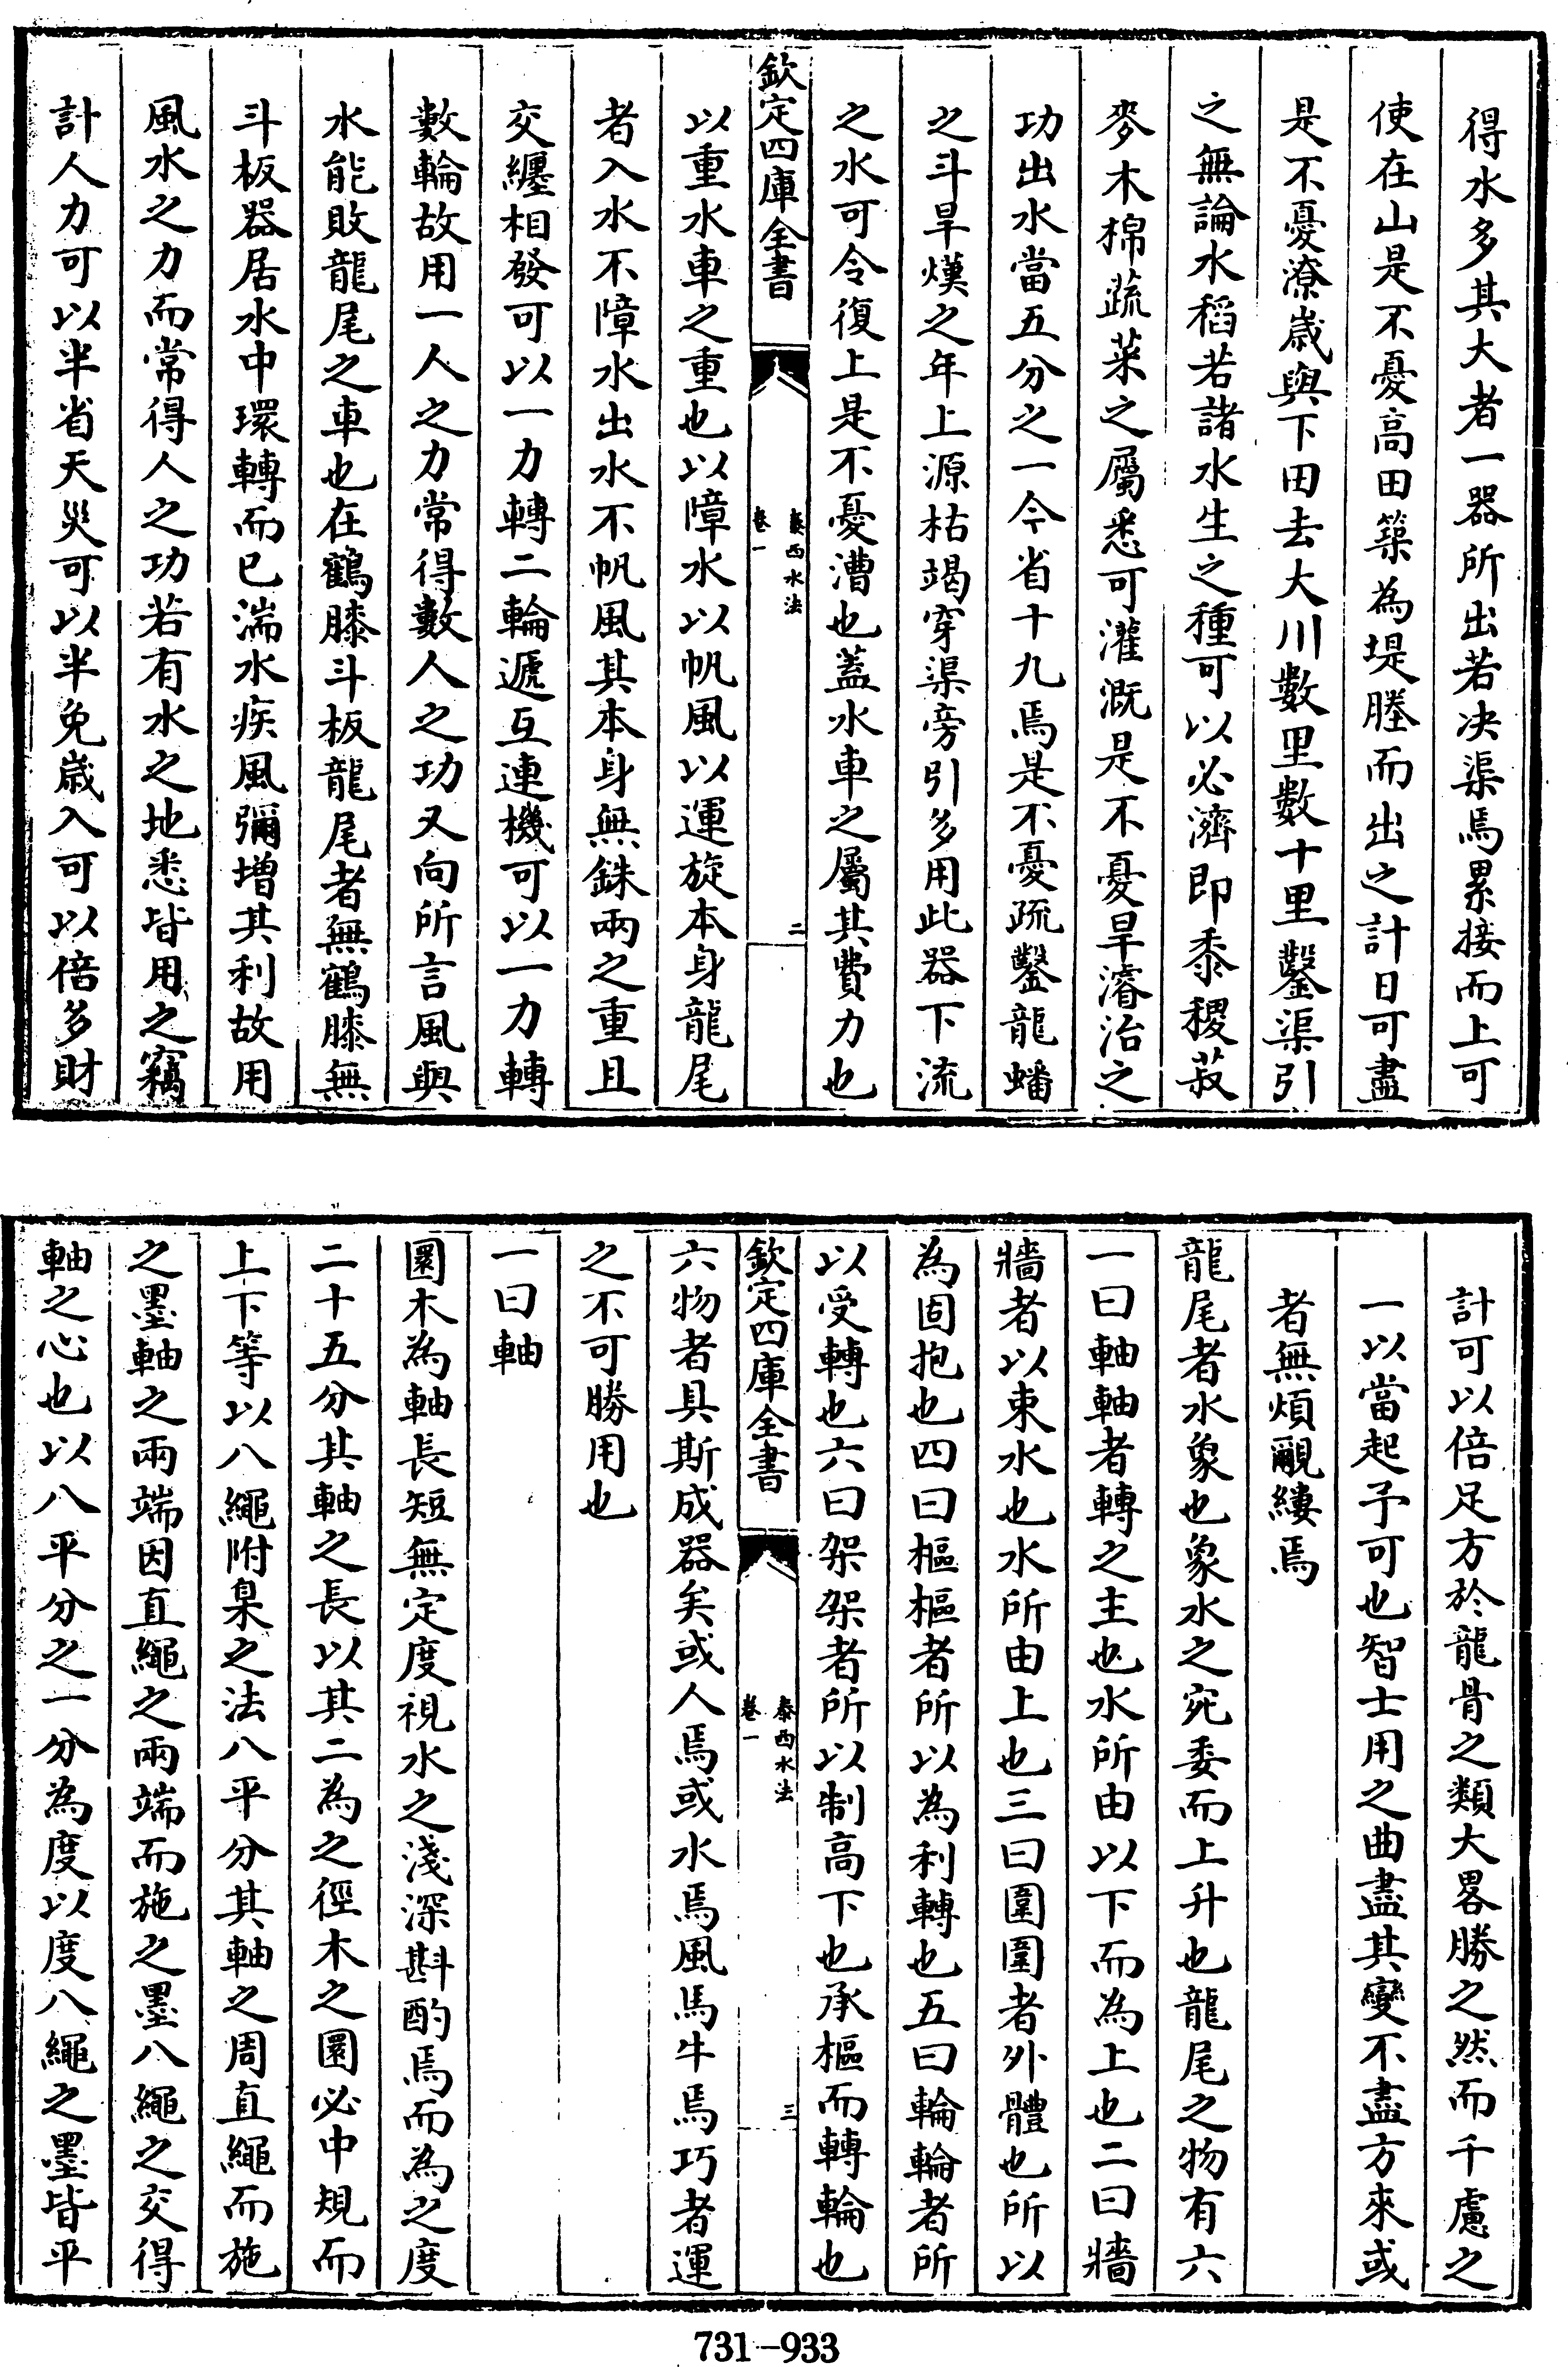 得水多其大者一器所出若决渠焉累接而上可
使在山是不憂高田築為堤塍而出之計日可盡
是不憂潦嵗與下田去大川數里數十里鑿渠引
之無論水稻若諸水生之種可以必濟即黍稷菽
麥木棉蔬菜之屬悉可灌溉是不憂旱濬治之
功出水當五分之一今省十九焉是不憂疏鑿龍蟠
之斗旱熯之年上源枯竭穿渠旁引多用此器下流
之水可令復上是不憂漕也蓋水車之屬其費力也
欽定四庫全書
泰西水法
卷一
二
以重水車之重也以障水以帆風以運旋本身龍尾
者入水不障水出水不帆風其本身無銖兩之重且
交纏相發可以一力轉二輪遞互連機可以一力轉
數輪故用一人之力常得數人之功又向所言風與
水能敗龍尾之車也在鶴膝斗板龍尾者無鶴膝無
斗板器居水中環轉而已湍水疾風彌增其利故用
風水之力而常得人之功若有水之地悉皆用之竊
計人力可以半省天災可以半免嵗入可以倍多財
計可以倍足方於龍骨之類大畧勝之然而千慮之
一以當起予可也智士用之曲盡其變不盡方來或
者無煩覼縷焉
龍尾者水象也象水之宛委而上升也龍尾之物有六
一曰軸軸者轉之主也水所由以下而為上也二曰牆
牆者以束水也水所由上也三曰圍圍者外體也所以
為固抱也四曰樞樞者所以為利轉也五曰輪輪者所
以受轉也六曰架架者所以制高下也承樞而轉輪也
欽定四庫全書
泰西水法
卷一
三
六物者具斯成器矣或人焉或水焉風馬牛焉巧者運
之不可勝用也
一曰軸
圜木為軸長短無定度視水之淺深斟酌焉而為之度
二十五分其軸之長以其二為之徑木之圜必中規而
上下等以八繩附臬之法八平分其軸之周直繩而施
之墨軸之兩端因直繩之兩端而施之墨八繩之交得
軸之心也以八平分之一分為度以度八繩之墨皆平
731-933